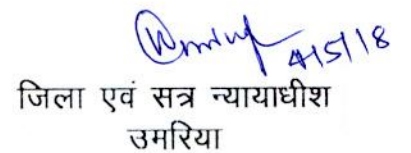 4/5/18
जिला एवं सत्र न्यायाधीश
उमरिया